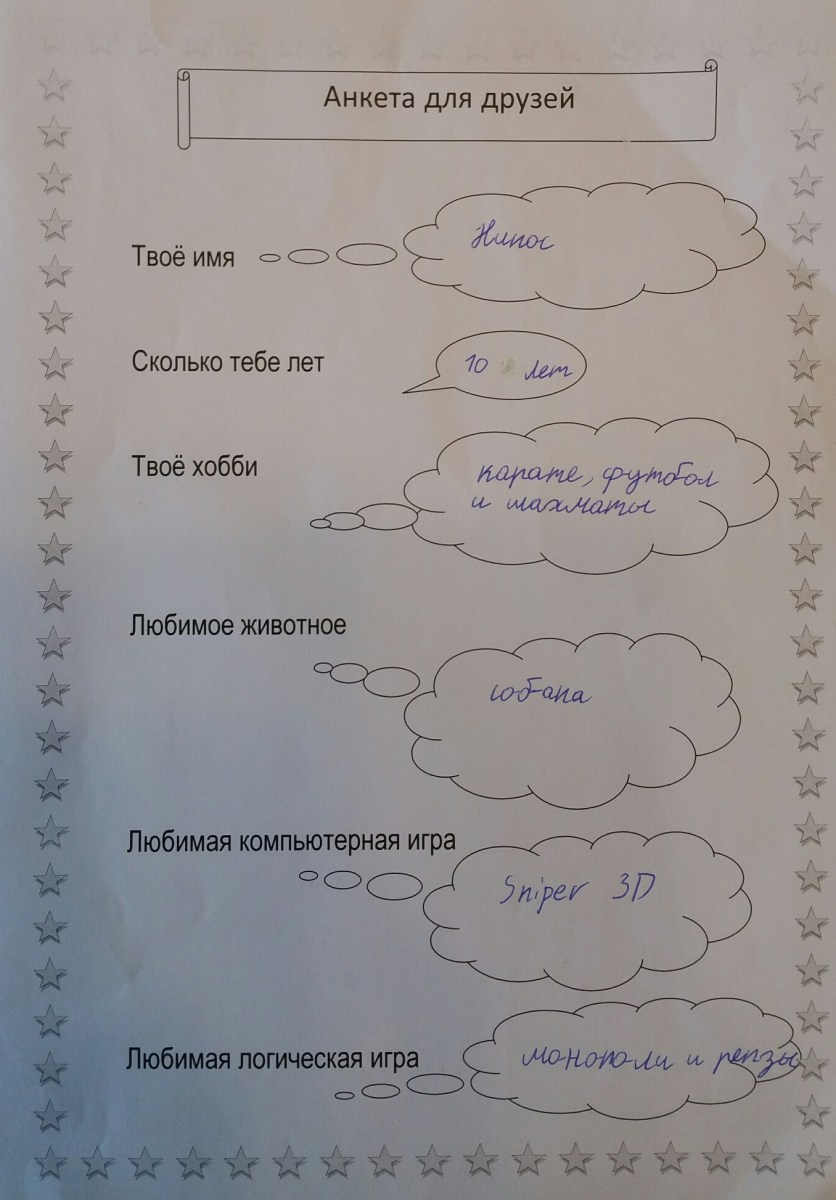 Анкета для друзей
Твоё имя
Никос
Сколько тебе лет
10 лет
Твоё хобби
карате, футбол
и шахматы
Любимое животное
собака
Любимая компьютерная игра
Sniper 3D
Любимая логическая игра
монополи и